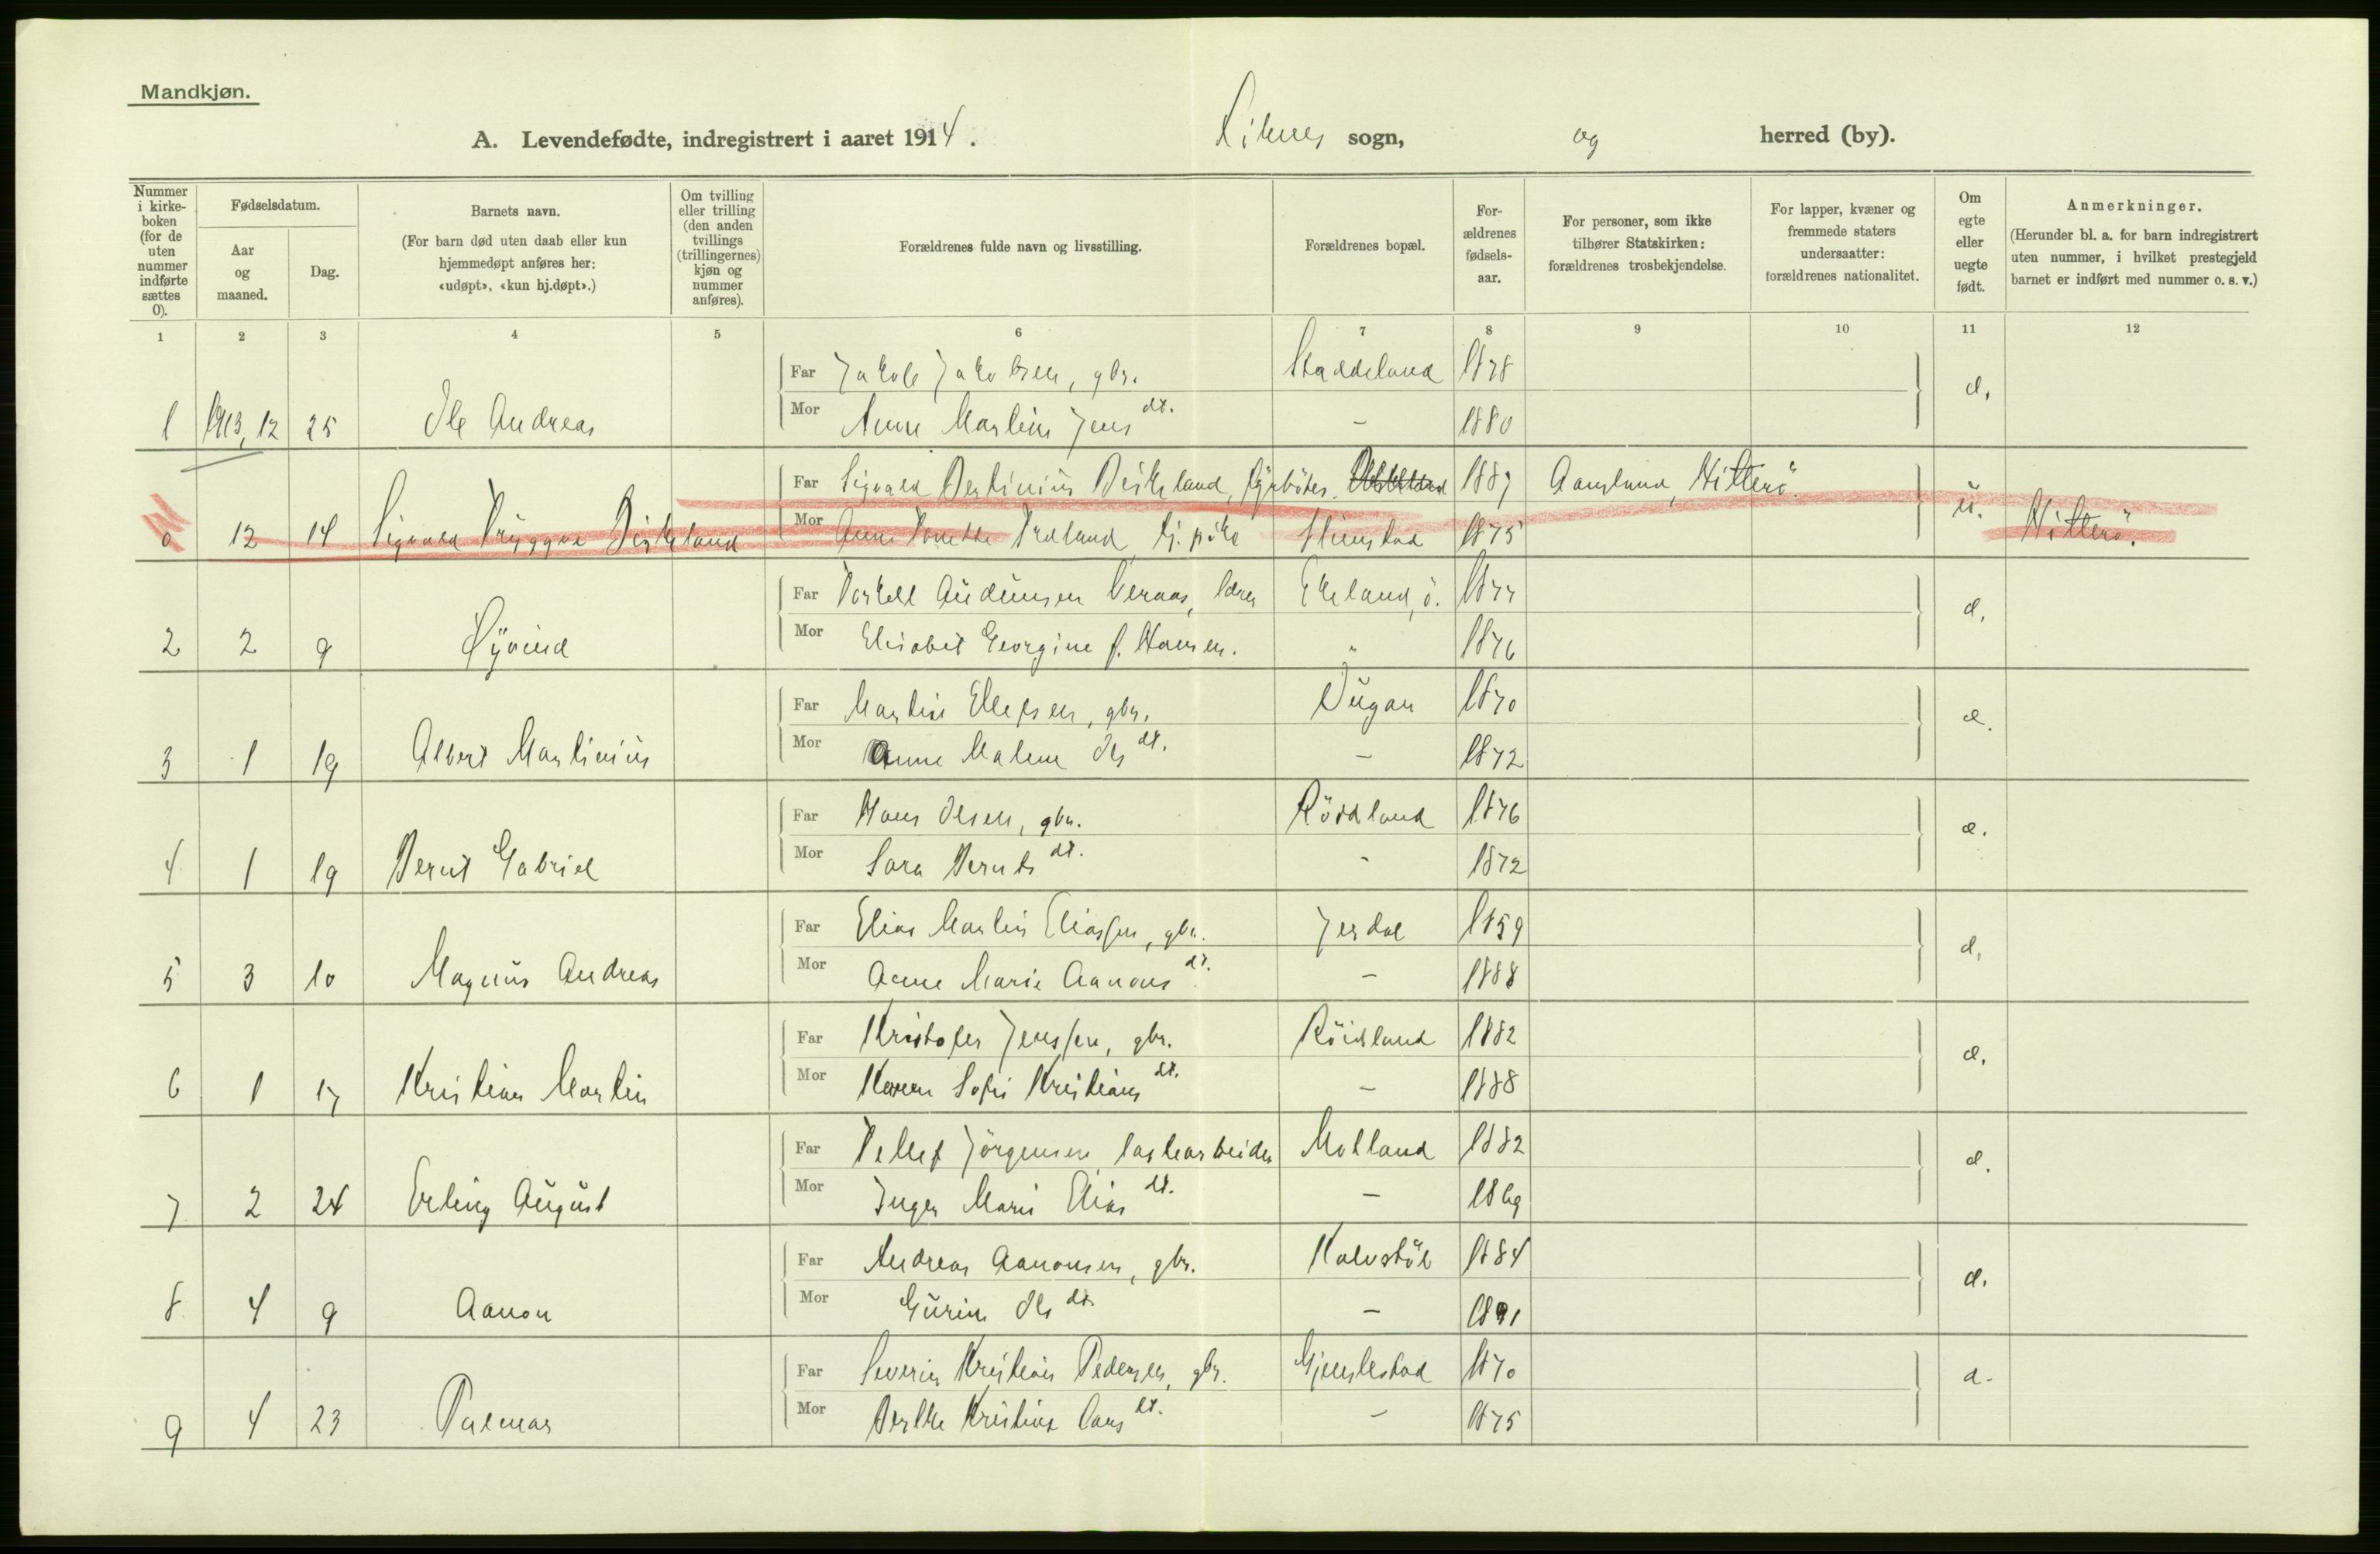 Mandkjøn.
A. Levendefødte, indregistrert i aaret 1914.
Liknes sogn, og herred (by).
Nummer i kirkeboken (for de uten nummer indførte sættes 0).
Fødselsdatum.
Aar og maaned.
Dag.
Barnets navn.
(For barn død uten daab eller kun hjemmedøpt anføres her: «udøpt», «kun hj.døpt».)
Om tvilling eller trilling (den anden tvillings (trillingernes) kjøn og nummer anføres).
Forældrenes fulde navn og livsstilling.
Forældrenes bopæl.
Forældrenes fødselsaar.
For personer, som ikke tilhører Statskirken: forældrenes trosbekjendelse.
For lapper, kvæner og fremmede staters undersaatter: forældrenes nationalitet.
Om egte eller uegte født.
Anmerkninger.
(Herunder bl. a. for barn indregistrert uten nummer, i hvilket prestegjeld barnet er indført med nummer o. s. v.)
1 2 3 4 5 6 7 8 9 10 11 12
Far Jakob Jakobsen, gbr. Staddeland 1878
1 1913, 12 25 Ole Andreas Mor Anne Martine Jens dt. – 1880 e.
Far Sigvald Bertinius Birkeland, 1887 Aamland, Hitterö.
0 12 14 Sigvald Trygve Birkeland Mor Anne Tonette Træland, tj. pike Stimstad 1875 u. Hitterö.
Far Torkell Audunsen Veraas, lærer Ekeland, ö. 1877
2 2 9 Öyvind Mor Elisabet Georgine f. Hansen. " 1876 e.
Far Martin Ellefsen, gbr. Dugan 1870
3 1 19 Albert Martinius Mor Anne Malene Ols dt. – 1872 e.
Far Hans Olsen, gbr. Röidland 1876
4 1 19 Bernt Gabriel Mor Sara Bernts dt. - 1872 e.
Far Elias Martin Eliassen, gbr. Jerdal 1859
5 3 10 Magnus Andreas Mor Anne Marie Aanons dt. – 1888 e.
Far Kristofer Jenssen, gbr. Röidland 1882
6 1 17 Kristian Martin Mor Karen Sofie Kristians dt. – 1888 e.
Far Tellef Jörgensen, lastearbeider Molland 1882
7 2 24 Erling August Mor Inger Marie Elias dt. – 1889 e.
Far Andreas Aanonsen, gbr. Kalvstöl 1884
8 4 9 Aanon Mor Gurine Ols dt. – 1891 e.
Far Severin Kristian Pedersen, gbr. Gjemlestad 1870
9 4 23 Palmar Mor Berthe Kristine Lars dt. – 1875 e.